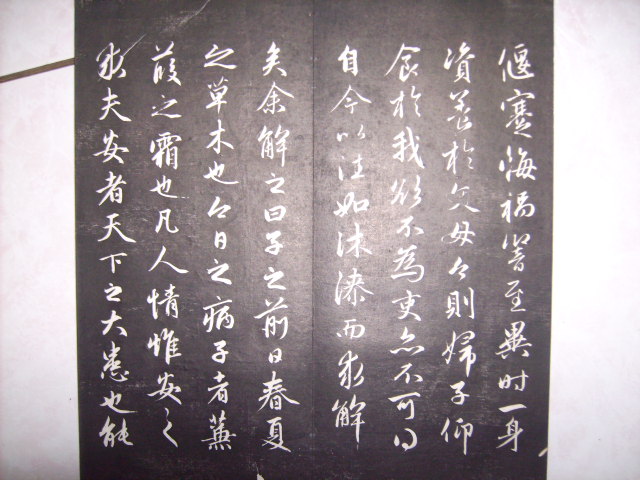 偃蹇悔禍響至異時一身
資養於父母今則婦子仰
食於我欲不為吏亦不可得
自今以往如沐漆而求解
矣余解之曰子之前日春夏
之草木也今日之病子者蒹
葭之霜也凡人情惟安之
求夫安者天下之大患也能